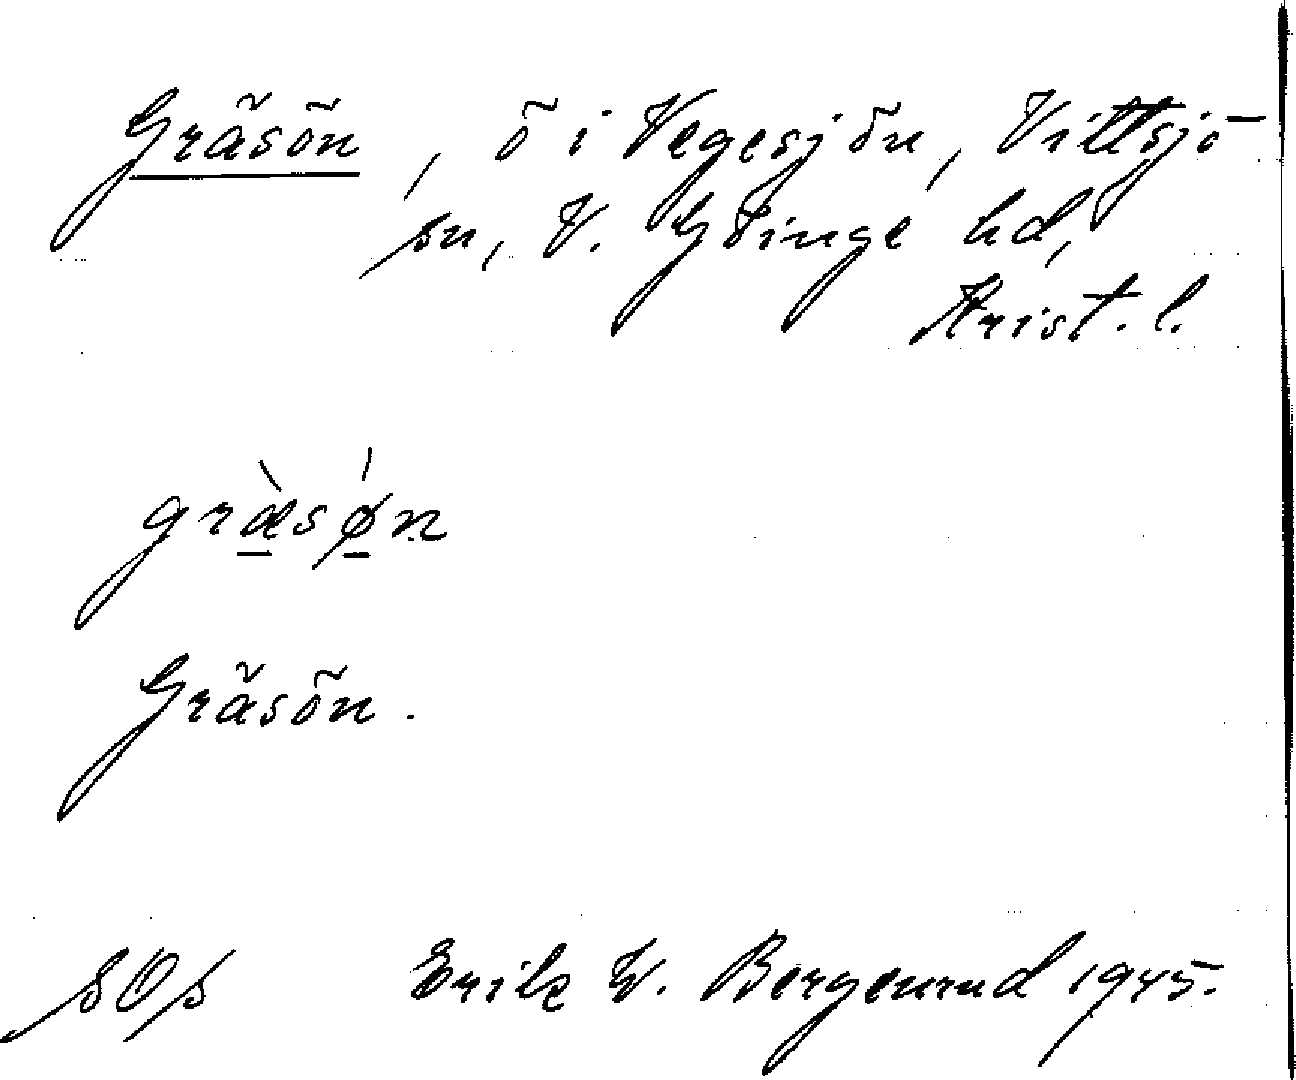 Gräsön, ö i Vegesjön, Vittsjö
sn, V. Göinge hd,
Krist. l.
græ̀sǿn
Gräsön.
SOS Erik W. Bergenrud 1945.